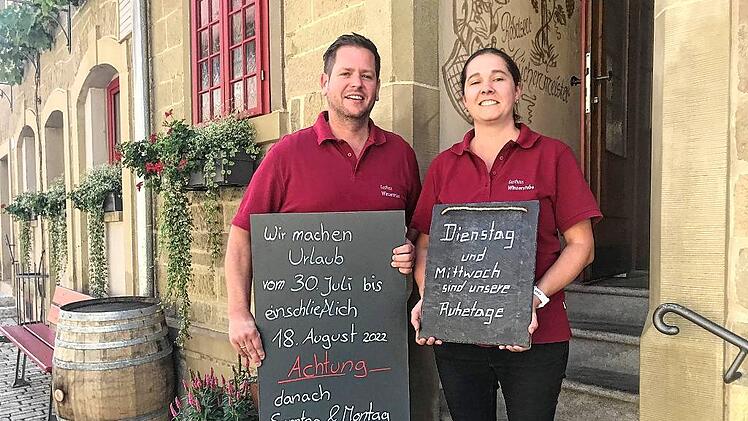 Wir machen
Urlaub
vom 30. Juli bis
einschließlich
18. August 2022
Achtung
danach
Sonntag & Montag
Dienstag
und
Mittwoch
sind unsere
Ruhetage
Winzerstube